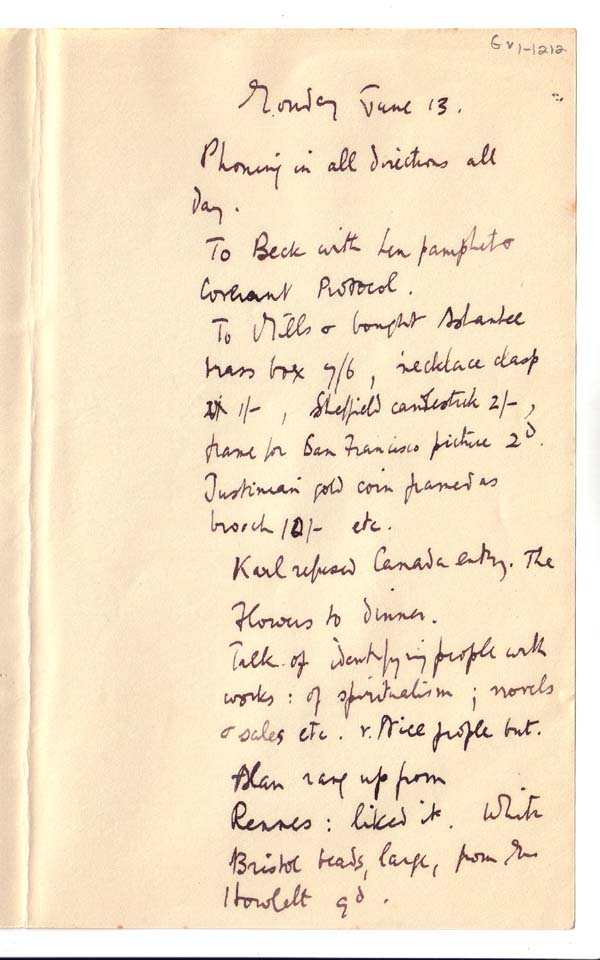 GV1-1212
Monday June 13.
Phoning in all directions all
day.
To Beck with Len pamphets
Covenant Protocol.
To Mills & bought Ashantee
brass box 7/6, necklace clasp
1/-, Sheffield candlestick 2/-,
frame for San Francisco picture 2d.
Justinian gold coin framed as
brooch 10/- etc.
Karl refused Canada entry. The
Flowers to dinner.
Talk of identifying people with
works: of spiritualism; novels
& sales etc. v. Nice people but.
Alan rang up from
Rennes: liked it. White
Bristol beads, large, from Mrs
Howlett 9d.